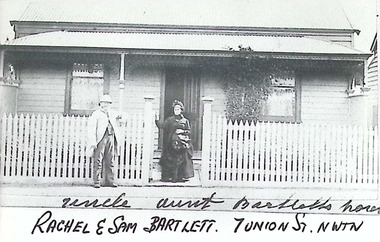 uncle aunt Bartletts house
RACHEL & SAM BARTLETT. 7 UNION ST. NWTN